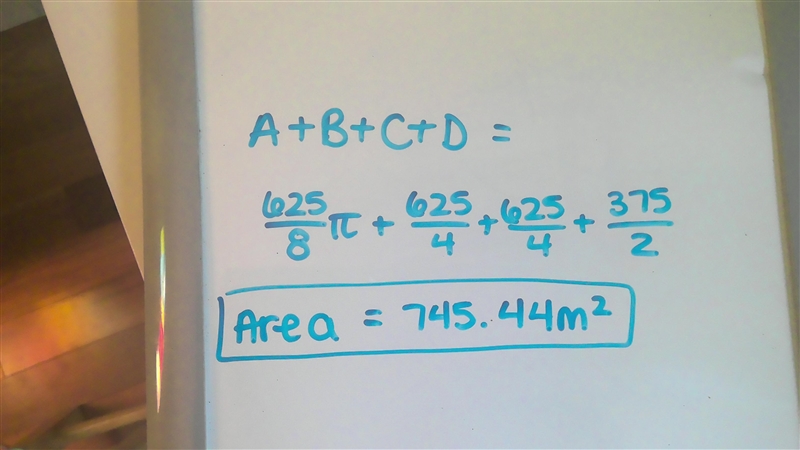 A+B+C+D =
625/8 π + 625/4 + 625/4 + 375/2
Area = 745.44m²